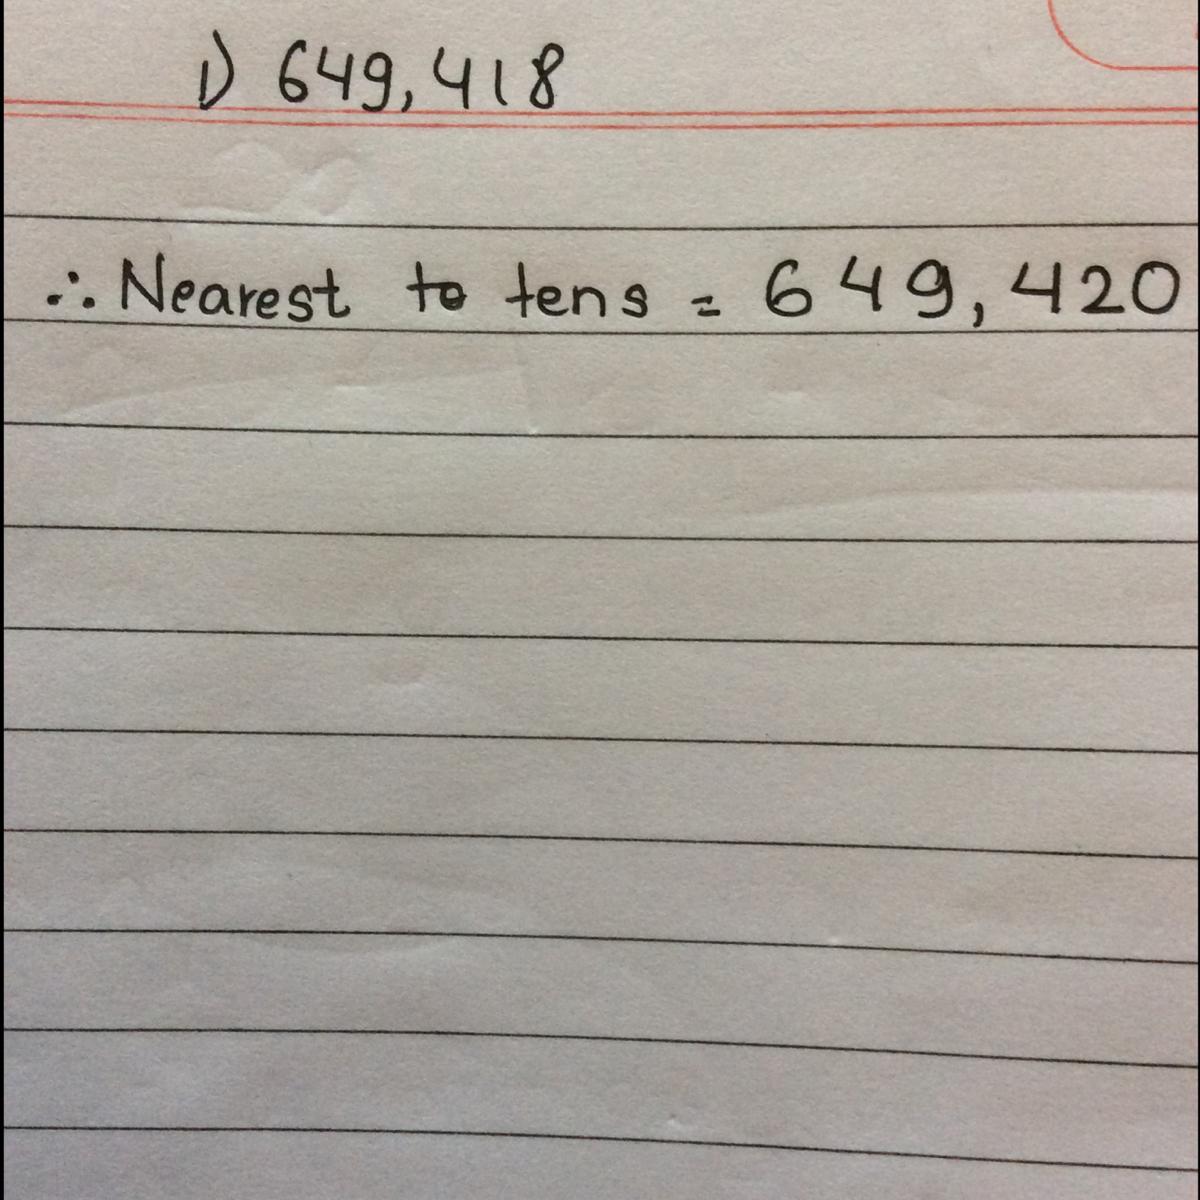 1) 649,418
∴ Nearest to tens = 649,420